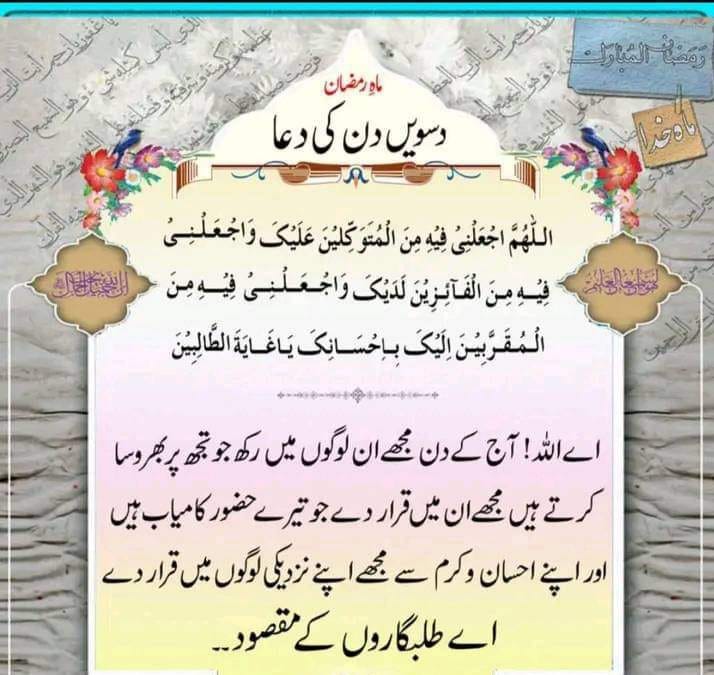 رمضان المبارک
ماہ خدا
ماہِ رمضان
دسویں دن کی دعا
اللّٰهُمَّ اجْعَلْنِیْ فِیْهِ مِنَ الْمُتَوَکِّلِیْنَ عَلَیْکَ وَاجْعَلْنِیْ
فِیْهِ مِنَ الْفَآئِزِیْنَ لَدَیْکَ وَاجْعَلْنِیْ فِیْهِ مِنَ
الْمُقَرَّبِیْنَ اِلَیْکَ بِاِحْسَانِکَ یَاغَایَةَ الطَّالِبِیْنَ
اے اللہ! آج کے دن مجھے ان لوگوں میں رکھ جو تجھ پر بھروسا
کرتے ہیں مجھے ان میں قرار دے جو تیرے حضور کامیاب ہیں
اور اپنے احسان و کرم سے مجھے اپنے نزدیکی لوگوں میں قرار دے
اے طلبگاروں کے مقصود۔۔